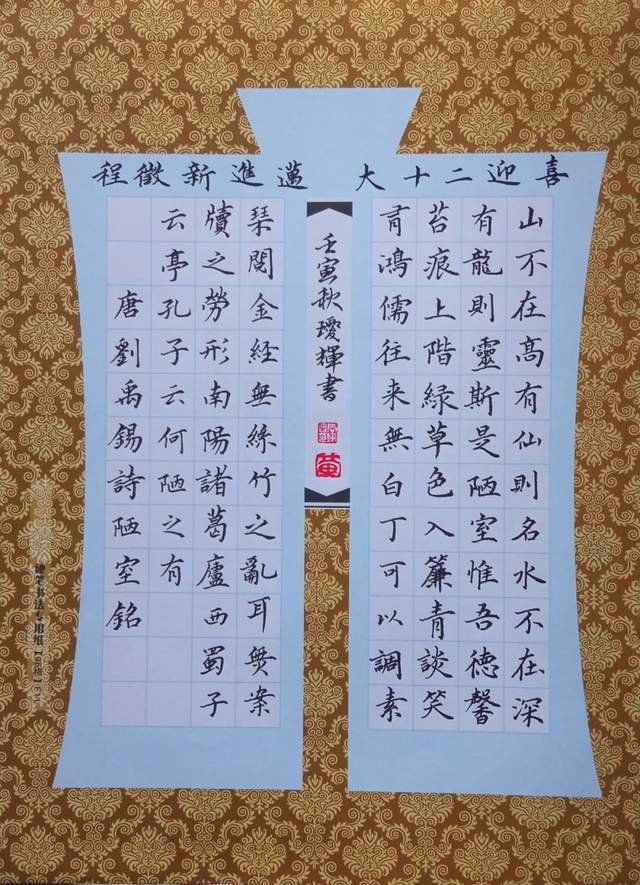 喜迎二十大
邁進新徵程
山不在高有仙則名水不在深
有龍則靈斯是陋室惟吾德馨
苔痕上階緑草色入簾青談笑
有鴻儒往来無白丁可以調素
壬寅秋璦輝書
琴閱金經無絲竹之亂耳無案
牘之勞形南陽諸葛廬西蜀子
云亭孔子云何陋之有
唐劉禹錫詩陋室銘
硬笔书法专用纸